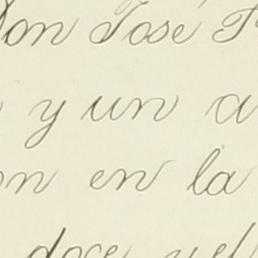 Don José
y un a
en la
doce y el